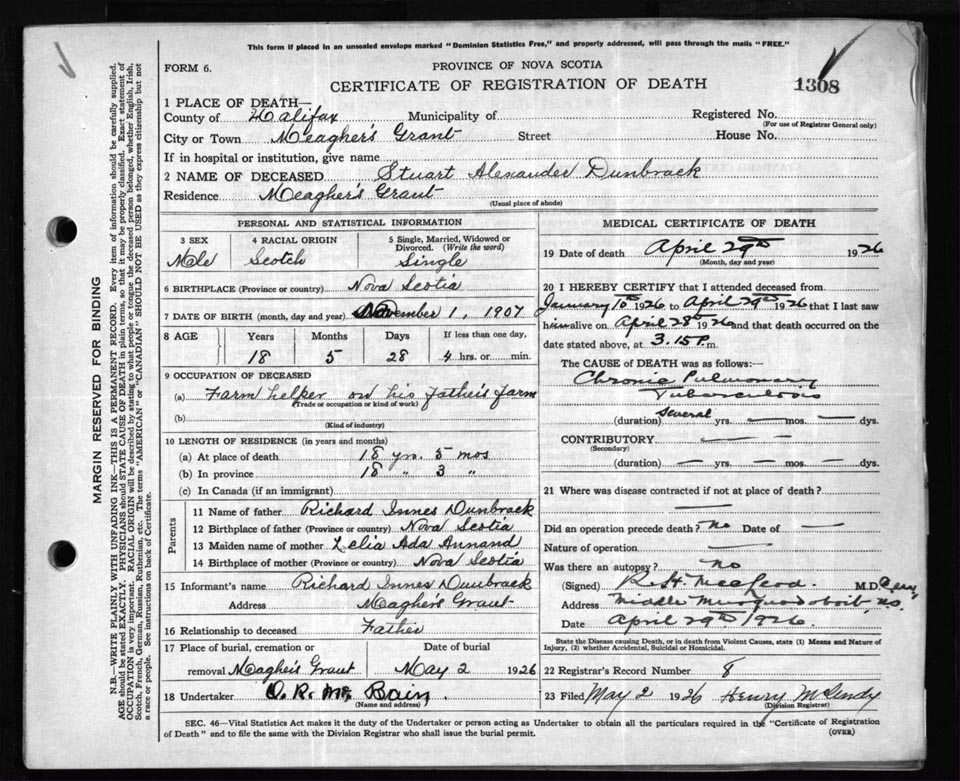 This form if placed in an unsealed envelope marked "Dominion Statistics Free," and properly addressed, will pass through the mails "FREE."
FORM 6.
PROVINCE OF NOVA SCOTIA
CERTIFICATE OF REGISTRATION OF DEATH
1308
1 PLACE OF DEATH—
County of Halifax Municipality of Registered No.
(For use of Registrar General only)
City or Town Meagher's Grant Street House No.
If in hospital or institution, give name
2 NAME OF DECEASED Stuart Alexander Dunbrack
Residence Meagher's Grant
(Usual place of abode)
PERSONAL AND STATISTICAL INFORMATION
3 SEX 4 RACIAL ORIGIN 5 Single, Married, Widowed or Divorced. (Write the word)
Male Scotch Single
6 BIRTHPLACE (Province or country) Nova Scotia
7 DATE OF BIRTH (month, day and year) November 1, 1907
8 AGE Years Months Days If less than one day,
18 5 28 4 hrs. or min.
9 OCCUPATION OF DECEASED
(a) Farm helper on his father's farm
(Trade or occupation or kind of work)
(b)
(Kind of industry)
10 LENGTH OF RESIDENCE (in years and months)
(a) At place of death 18 yrs. 5 mos
(b) In province 18 " 3 "
(c) In Canada (if an immigrant)
Parents
11 Name of father Richard Innes Dunbrack
12 Birthplace of father (Province or country) Nova Scotia
13 Maiden name of mother Zelia Ada Annand
14 Birthplace of mother (Province or country) Nova Scotia
15 Informant's name Richard Innes Dunbrack
Address Meagher's Grant
16 Relationship to deceased Father
17 Place of burial, cremation or Date of burial
removal Meaghers Grant May 2 1926
18 Undertaker O. R. Mc Bain.
(Name and address)
MEDICAL CERTIFICATE OF DEATH
19 Date of death April 29th 1926
(Month, day and year)
20 I HEREBY CERTIFY that I attended deceased from
January 10th 1926 to April 29th 1926 that I last saw
him alive on April 28th 1926 and that death occurred on the
date stated above, at 3.15 P. m.
The CAUSE of DEATH was as follows:—
Chronic Pulmonary
Tuberculosis
(duration) Several yrs. — mos. — dys.
CONTRIBUTORY — —
(Secondary)
(duration) — yrs. — mos. — dys.
21 Where was disease contracted if not at place of death?
—
Did an operation precede death? no Date of —
Nature of operation —
Was there an autopsy? no
(Signed) R. H. McLeod. M.D.
Address Middle Musquodoboit N.S.
Date April 29th 1926.
State the Disease causing Death, or in death from Violent Causes, state (1) Means and Nature of Injury, (2) whether Accidental, Suicidal or Homicidal.
22 Registrar's Record Number 8
23 Filed May 2 1926 Henry
(Division Registrar)
SEC. 46—Vital Statistics Act makes it the duty of the Undertaker or person acting as Undertaker to obtain all the particulars required in the "Certificate of Registration
of Death" and to file the same with the Division Registrar who shall issue the burial permit.
(OVER)
MARGIN RESERVED FOR BINDING
N.B.—WRITE PLAINLY WITH UNFADING INK—THIS IS A PERMANENT RECORD. Every item of information should be carefully supplied.
AGE should be stated EXACTLY. PHYSICIANS should STATE CAUSE OF DEATH in plain terms, so that it may be properly classified. Exact statement of
OCCUPATION is very important. RACIAL ORIGIN will be described by stating to what people or tongue the deceased person belonged, whether English, Irish,
Scotch, French, German, Russian, Ruthenian, etc. The terms "AMERICAN" or "CANADIAN" SHOULD NOT BE USED as they express citizenship but not
a race or people. See instructions on back of Certificate.